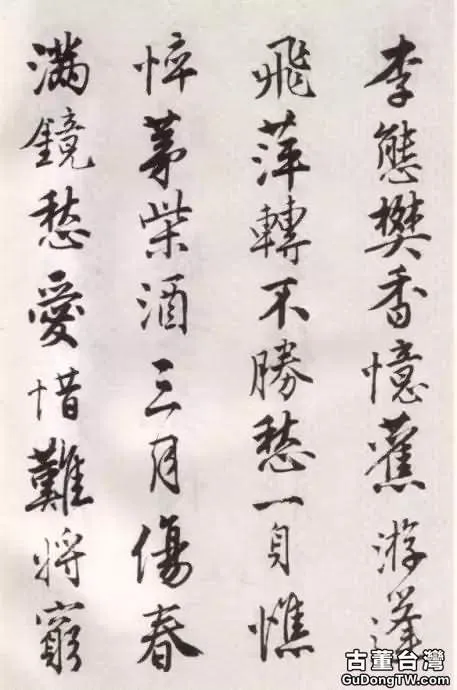 李態樊香憶舊游蓬
飛萍轉不勝愁一身憔
悴茅柴酒三月傷春
滿鏡愁愛惜難將窮
古董台灣
GuDongTW.com